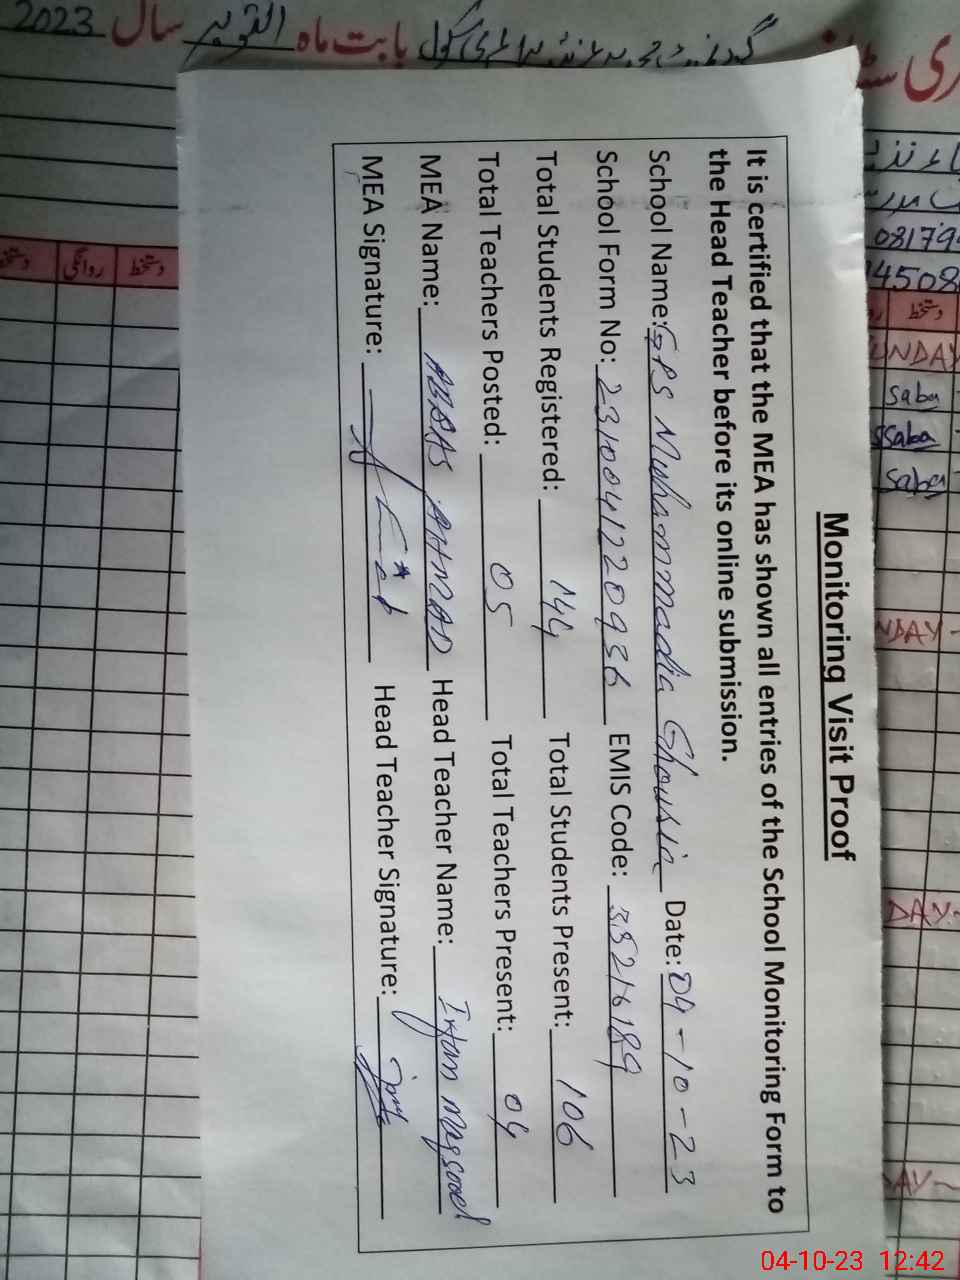 Monitoring Visit Proof
It is certified that the MEA has shown all entries of the School Monitoring Form to
the Head Teacher before its online submission.
School Name: GPS Muhammadia Ghousia Date: 04-10-23
School Form No: 2310041220936 EMIS Code: 35216189
Total Students Registered: 144 Total Students Present: 106
Total Teachers Posted: 05 Total Teachers Present: 04
MEA Name: ABBAS AHMAD Head Teacher Name: Irfan Maqsood
MEA Signature: Head Teacher Signature:
بابت ماہ اکتوبر سال 2023
دستخط
روانگی
دستخط
دستخط
SUNDAY
saba
saba
saba
04-10-23 12:42